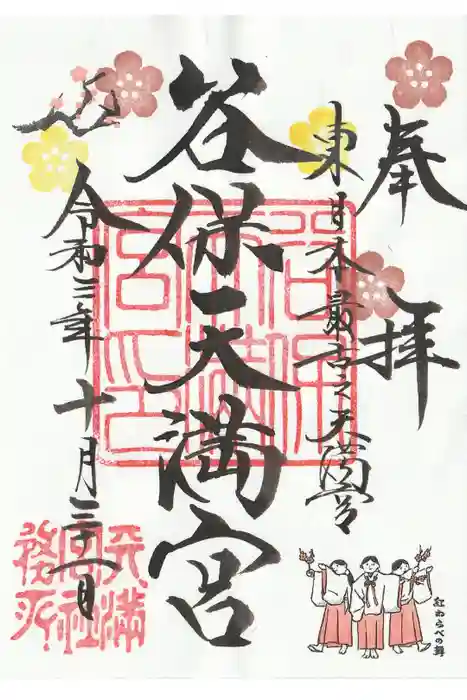 奉拝
東日本最古之天満宮
谷保天満宮
令和三年十月三十一日
天満
宮社
務所
紅わらべの舞